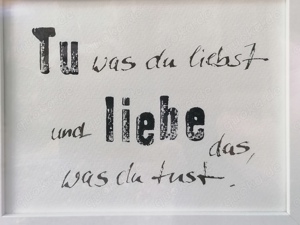 Tu was du liebst
und liebe das,
was du tust.